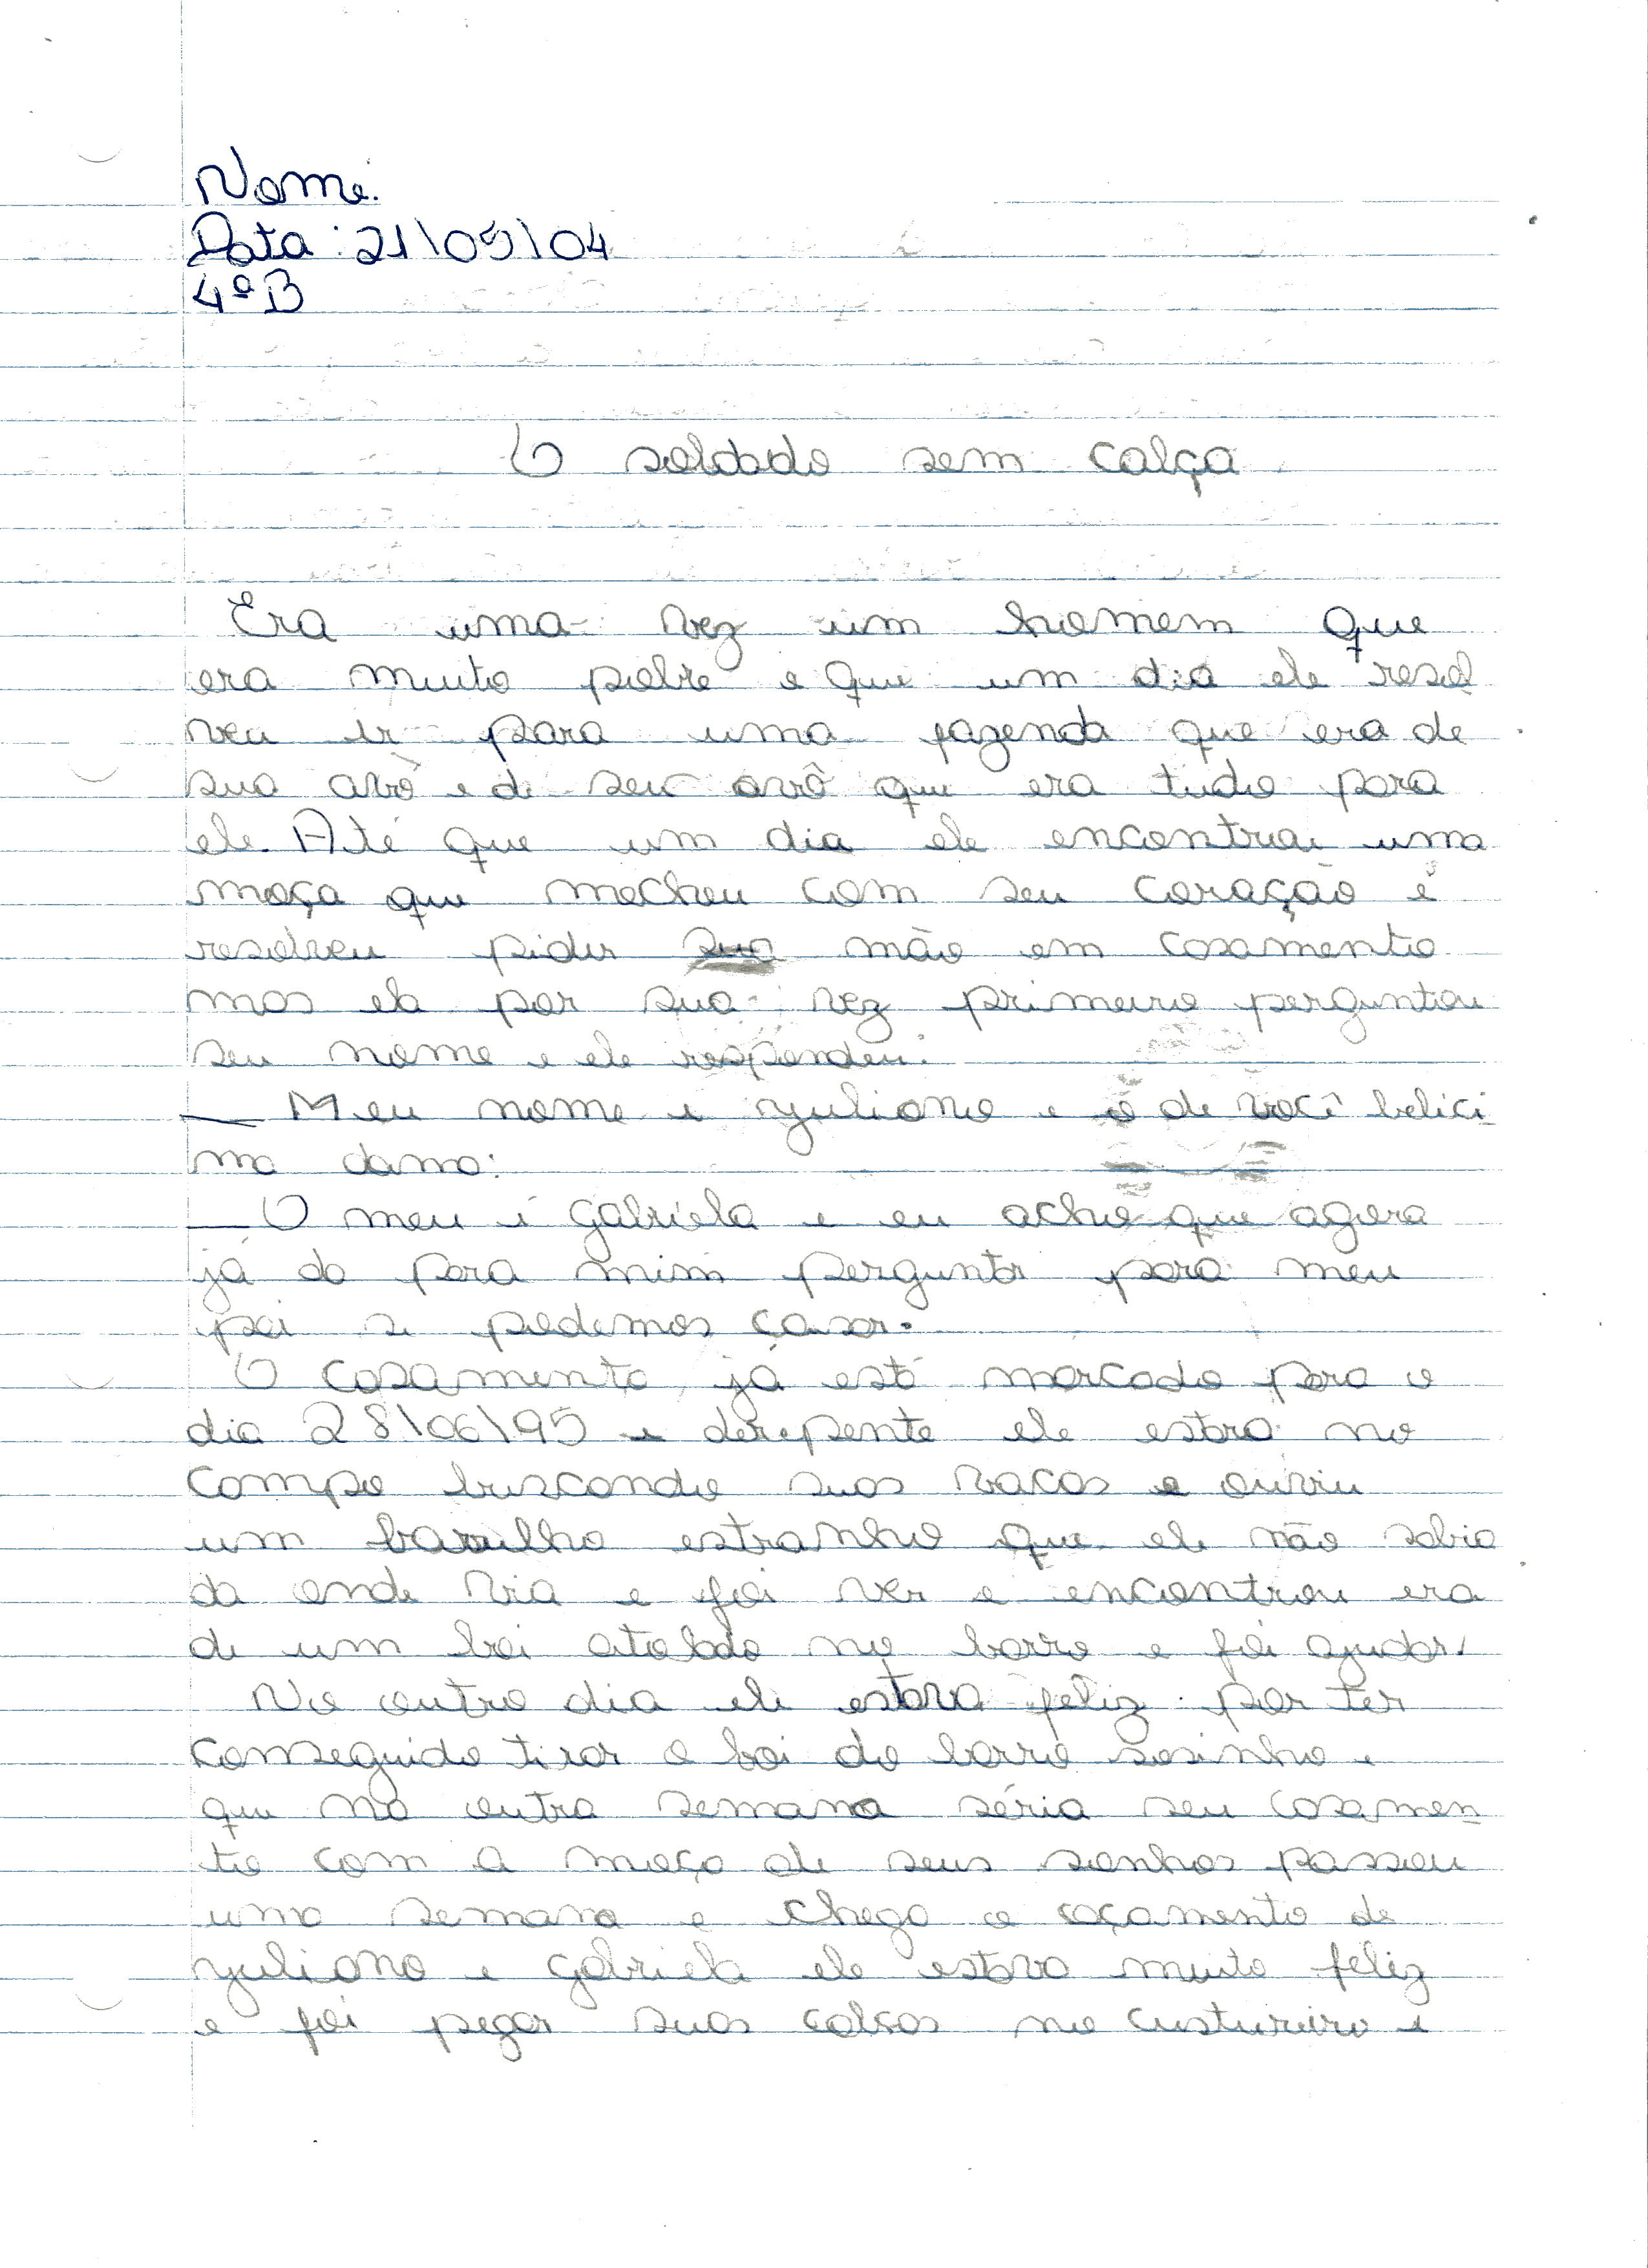 Nome:
Data: 21\09\04
4ª B
O soldado sem calça
Era uma vez um homem que
era muito pobre e que um dia ele resol
veu ir para uma fazenda que era de
sua avó e de seu avô que era tudo para
ele. Até que um dia ele encontrou uma
moça que mecheu com seu coração e
resolveu pidir sua mão em casamento
mas ela por sua vez primeiro perguntou
seu nome e ele respondeu:
— Meu nome e yuliano e o de você belici
ma dama:
— O meu é gabriela e eu acho que agora
já da para mim pergunta para meu
pai se podemos casar.
O casamento já está marcado para o
dia 28\06\95 e derepente ele estava no
campo buscando suas vacas e ouviu
um barulho estranho que ele não sabia
da onde via e foi ver e encontrou era
de um boi atolado no barro e foi ajudar.
No outro dia ele estava feliz por ter
conseguido tirar o boi do barro sosinho e
que na outra semana séria seu casamen
to com a moça de seus sonhos passou
uma semana e chego o caçamento de
yuliano e gabriela ele estava muito feliz
e foi pegar suas calsas no custureiro e